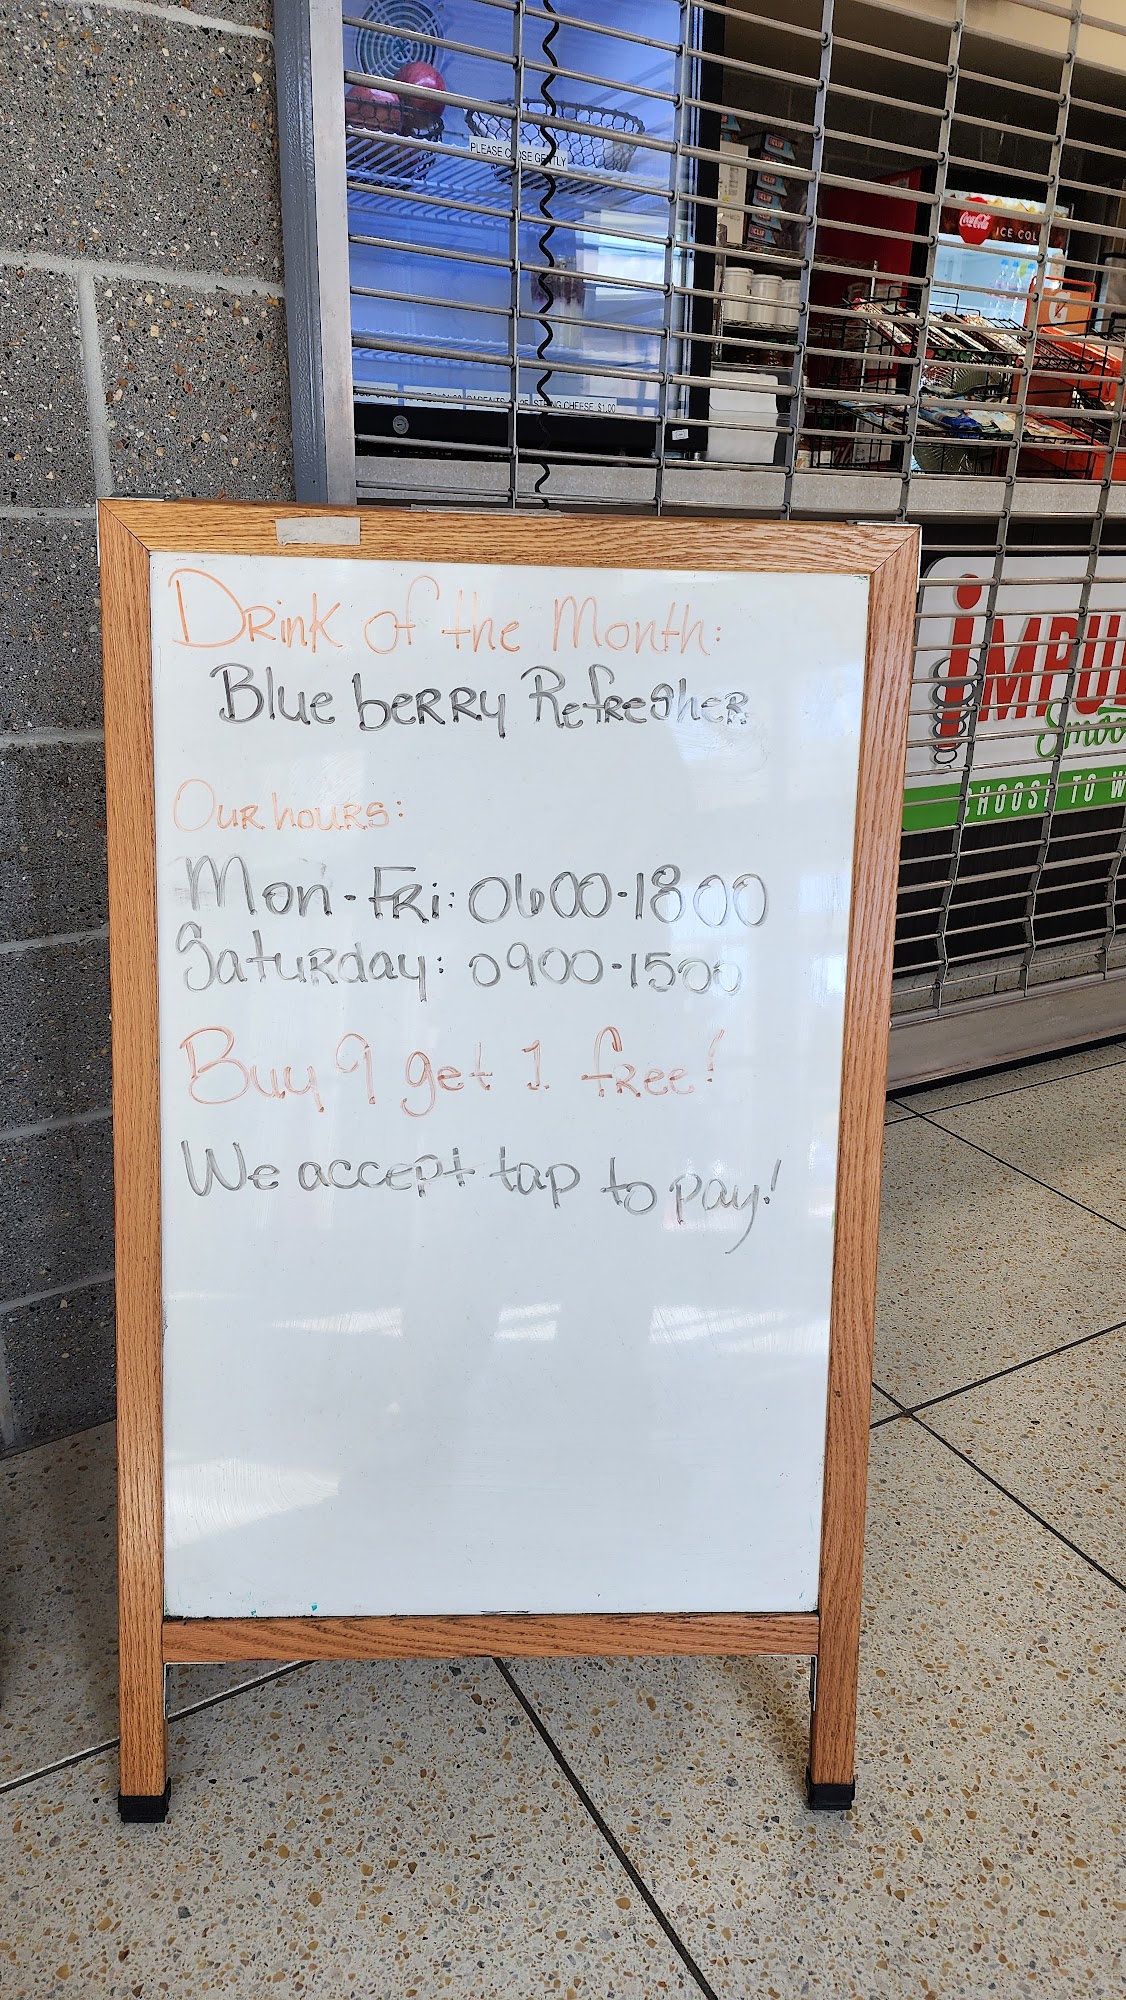 PLEASE CLOSE GENTLY
Coca-Cola
ICE COL
STRING CHEESE $1.00
Drink of the Month:
Blue berry Refresher
Our hours:
Mon-Fri: 0600-1800
Saturday: 0900-1500
Buy 9 get 1 free!
We accept tap to pay!
IMPU
Smoo
CHOOSE TO W